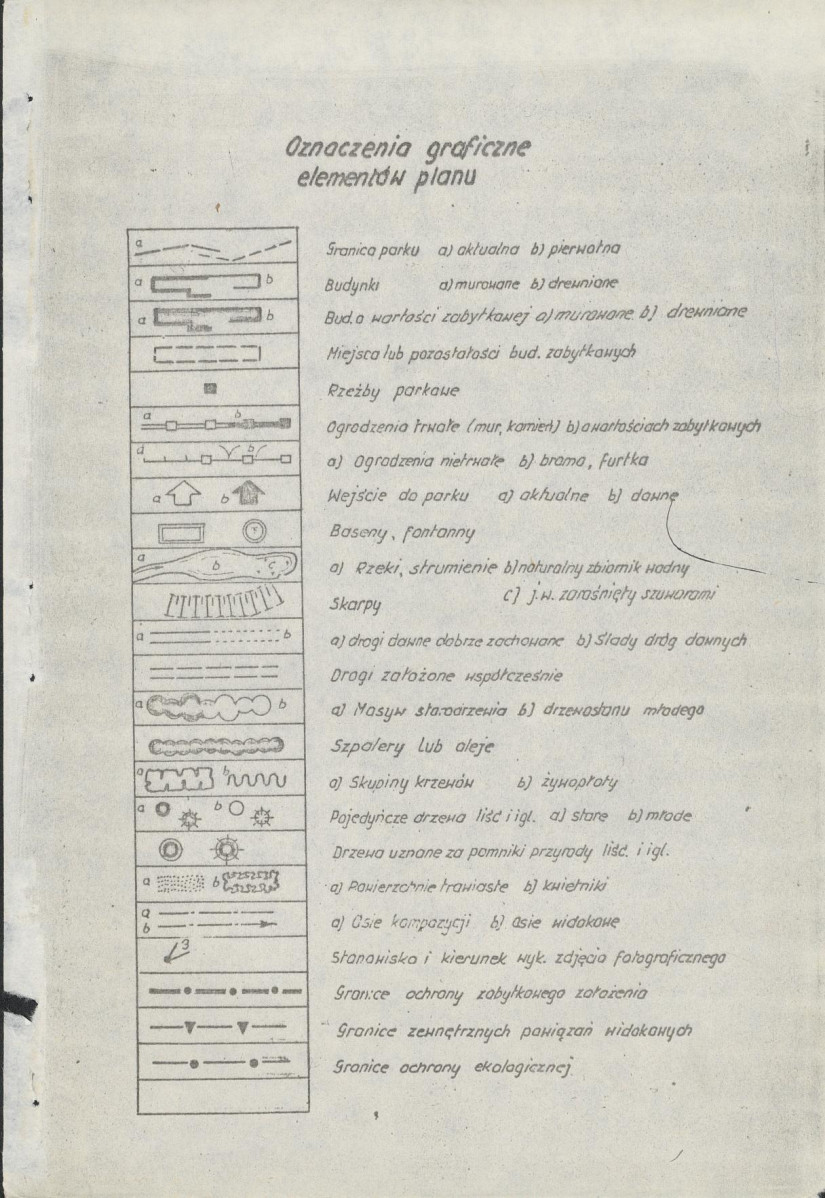 Oznaczenia graficzne
elementów planu
a
Granica parku a) aktualna b) pierwotna
a b
Budynki a) murowane b) drewniane
a b
Bud. o wartości zabytkowej a) murowane b) drewniane
Miejsca lub pozostałości bud. zabytkowych
Rzeźby parkowe
a b
Ogrodzenia trwałe (mur, kamień) b) o wartościach zabytkowych
a b
a) Ogrodzenia nietrwałe b) brama, furtka
a b
Wejście do parku a) aktualne b) dawne
Baseny, fontanny
a b c
a) Rzeki, strumienie b) naturalny zbiornik wodny
c) j.w. zarośnięty szuwarami
Skarpy
a b
a) drogi dawne dobrze zachowane b) Ślady dróg dawnych
Drogi założone współcześnie
a b
a) Masyw starodrzewia b) drzewostanu młodego
Szpalery lub aleje
a b
a) Skupiny krzewów b) żywopłoty
a b
Pojedyńcze drzewa liść i igl. a) stare b) młode
Drzewa uznane za pomniki przyrody liść. i igl.
a b
a) Powierzchnie trawiaste b) kwietniki
a
b
a) Osie kompozycji b) Osie widokowe
3
Stanowisko i kierunek wyk. zdjęcia fotograficznego
Granice ochrony zabytkowego założenia
Granice zewnętrznych powiązań widokowych
Granice ochrony ekologicznej